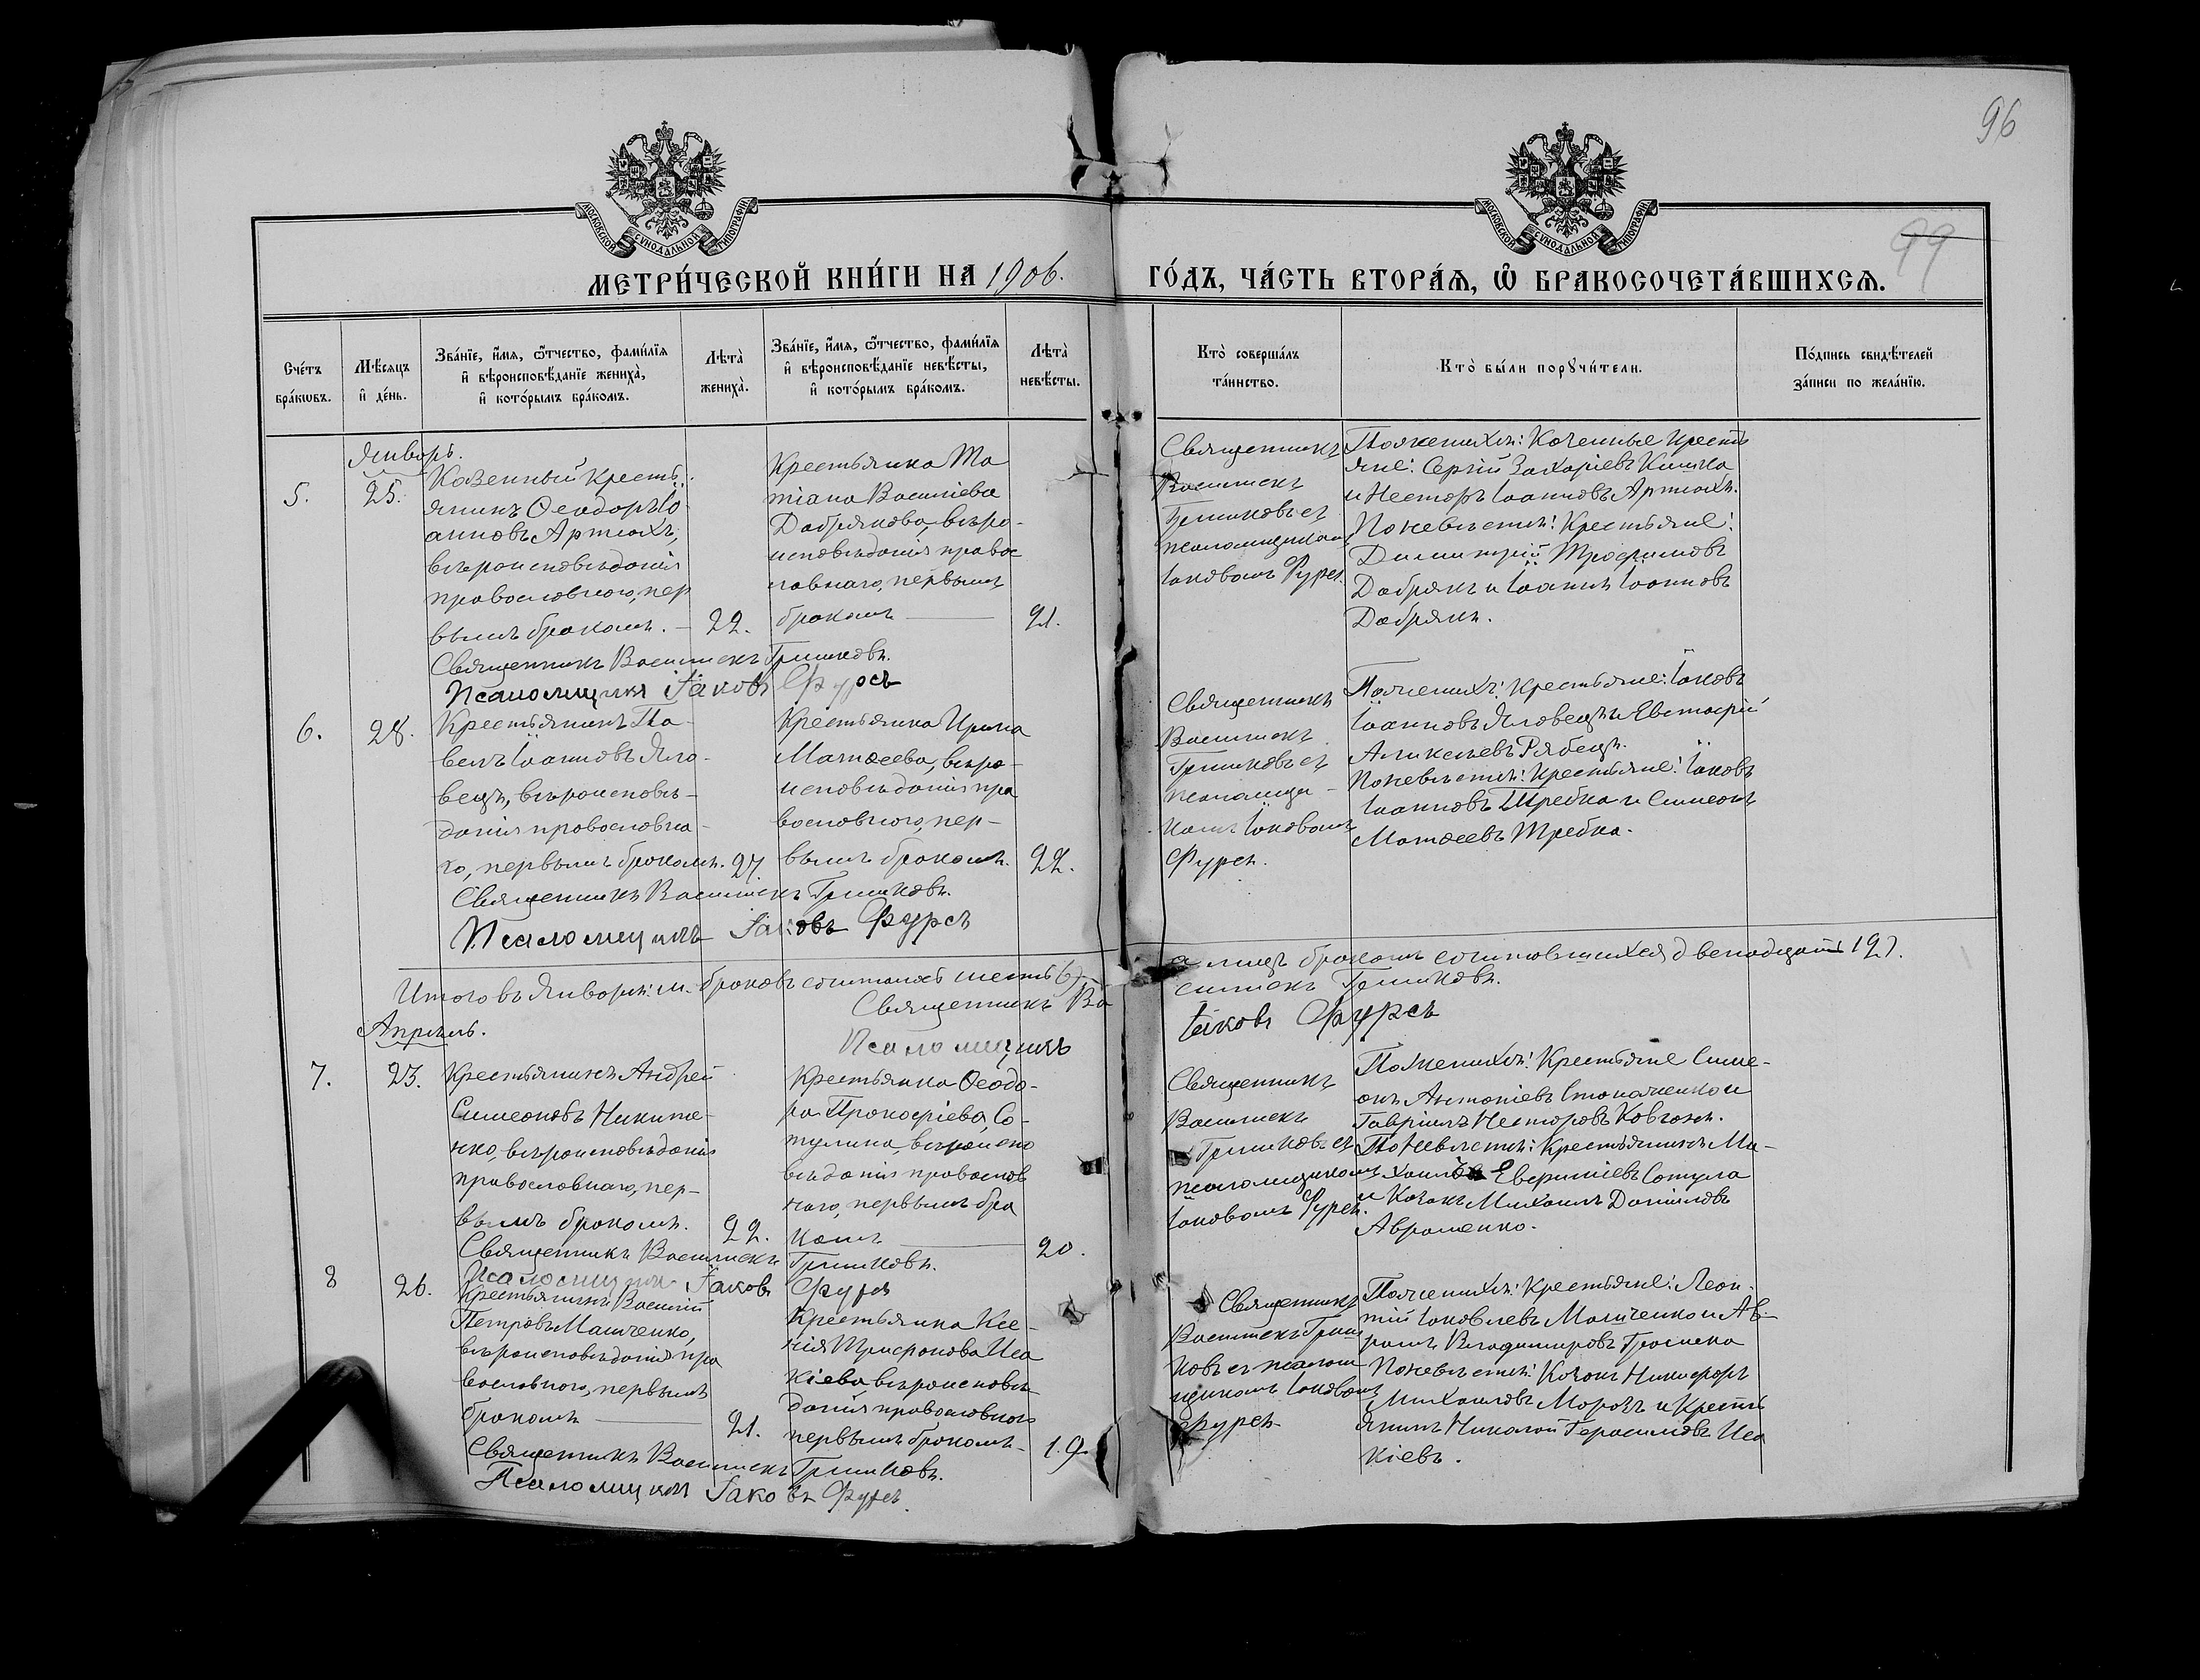 96
99
МОСКОВСКОЙ СѴНОДАЛЬНОЙ ТИПОГРАФІИ
МОСКОВСКОЙ СѴНОДАЛЬНОЙ ТИПОГРАФІИ
МЕТРИ́ЧЕСКОЙ КНИ́ГИ НА 1906. ГО́ДЪ, ЧА́СТЬ ВТОРА́Ѧ, Ѡ҆ БРАКОСОЧЕТА́ВШИХСѦ.
Сче́тъ бра́кѡвъ.
Мѣ́сѧцъ и҆ де́нь.
Зва́нїе, и҆́мѧ, ѻ҆́тчество, фами́лїѧ и҆ вѣроисповѣ́данїе жениха̀, и҆ кото́рымъ бра́комъ.
Лѣта̀ жениха̀.
Зва́нїе, и҆́мѧ, ѻ҆́тчество, фами́лїѧ и҆ вѣроисповѣ́данїе невѣ́сты, и҆ кото́рымъ бра́комъ.
Лѣта̀ невѣ́сты.
Кто̀ соверша́лъ та́инство.
Кто̀ бы́ли порꙋчи́тели.
По́дпись свидѣ́телей за́писи по жела́нїю.
Январь.
5.
25.
Казенный Кресть-
янинъ Ѳеодоръ Іо
анновъ Артюхъ,
вѣроисповѣданія
православнаго, пер
вымъ бракомъ. — 22.
Крестьянка Та
тіана Василіева
Добрякова, вѣро-
исповѣданія правос
лавнаго, первымъ
бракомъ — 21.
Священникъ
Василискъ
Гришковъ съ
псаломщикомъ
Іаковомъ Фурсъ.
По женихѣ: Казенные кресть
яне: Сергій Захаріевъ Кишка
и Несторъ Іоанновъ Артюхъ.
По невѣстѣ: Крестьяне:
Димитрій Трофимовъ
Добрякъ и Іоаннъ Іоанновъ
Добрякъ.
Священникъ Василискъ Гришковъ.
Псаломщикъ Іаковъ Фурсъ
6.
28.
Крестьянинъ Па-
велъ Іоанновъ Яло-
вецъ, вѣроисповѣ-
данія православна-
го, первымъ бракомъ. 27.
Крестьянка Ирина
Матѳеева, вѣро-
исповѣданія пра
вославнаго, пер-
вымъ бракомъ. 22.
Священникъ
Василискъ
Гришковъ съ
псаломщи-
комъ Іаковомъ
Фурсъ.
По женихѣ: Крестьяне: Іаковъ
Іоанновъ Яловецъ и Евстафій
Алексѣевъ Рябецъ.
По невѣстѣ: Крестьяне: Іаковъ
Іоанновъ Требка и Симеонъ
Матѳеевъ Требка.
Священникъ Василискъ Гришковъ.
Псаломщикъ Іаковъ Фурсъ
Итого въ Январѣ м. браковъ состоялось шесть (6) а лицъ бракомъ сочетавшихся двенадцать 12).
Священникъ Василискъ Гришковъ.
Псаломщикъ Іаковъ Фурсъ
Апрѣль.
7.
23.
Крестьянинъ Андрей
Симеоновъ Никите-
нко, вѣроисповѣданія
православнаго, пер-
вымъ бракомъ. 22.
Крестьянка Ѳеодо-
ра Прокофіева Со-
тулина, вѣроиспо
вѣданія православ
наго, первымъ бра
комъ — 20.
Священникъ
Василискъ
Гришковъ съ
псаломщикомъ
Іаковомъ Фурсъ.
По женихѣ: Крестьяне Симе-
онъ Антоніевъ
Гавріилъ Несторовъ Ковганъ.
По невѣстѣ: Крестьянинъ Ми-
хаилъ Сотула
и Козакъ Михаилъ Даніиловъ
Авраменко.
Священникъ Василискъ Гришковъ.
Псаломщикъ Іаковъ Фурсъ
8
26.
Крестьянинъ Василій
Петровъ Мащенко,
вѣроисповѣданія пра
вославнаго, первымъ
бракомъ — 21.
Крестьянка Ксе-
нія Трифонова Иса
кіева вѣроисповѣ-
данія православнаго
первымъ бракомъ- 19.
Священникъ
Василискъ Гриш
ковъ съ псалом
щикомъ Іаковомъ
Фурсъ
По женихѣ: Крестьяне: Леон-
тій Іаковлевъ Мащенко и Ав-
рамъ Владимировъ
По невѣстѣ: Козакъ Никифоръ
Михаиловъ Морозъ и Кресть
янинъ Николай Герасимовъ Иса
кіевъ.
Священникъ Василискъ Гришковъ.
Псаломщикъ Іаковъ Фурсъ.